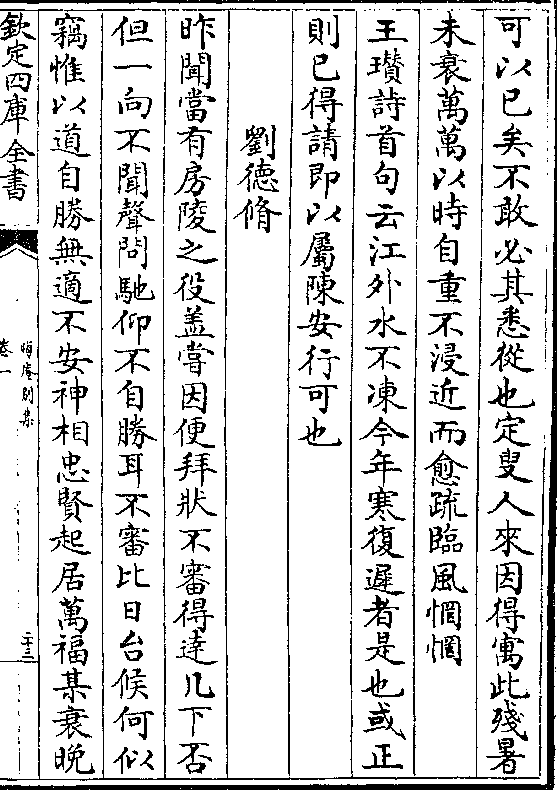 可以已矣不敢必其悉從也定叟人來因得寓此殘暑
未衰萬萬以時自重不浸近而愈疏臨風惘惘
王瓚詩首句云江外水不凍今年寒復遲者是也或正
則已得請即以屬陳安行可也
劉德脩
昨聞當有房陵之役盖嘗因便拜狀不審得達几下否
但一向不聞聲問馳仰不自勝耳不審比日台候何似
竊惟以道自勝無適不安神相忠賢起居萬福某衰晚
欽定四庫全書
晦庵別集
卷一
二十三